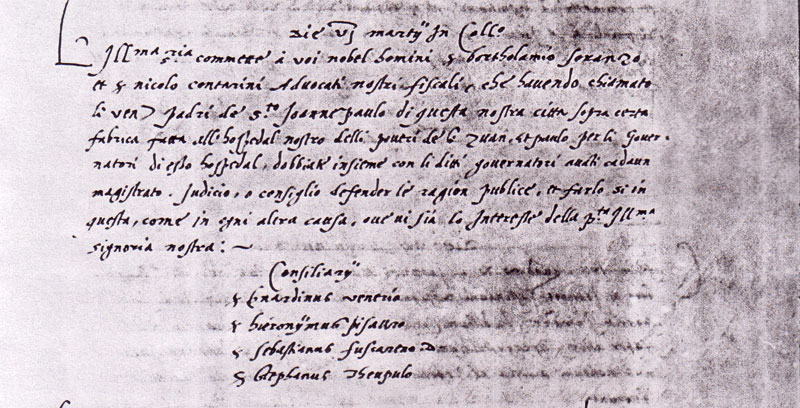 Die vj martij In Coll.o
Ill.ma s.ria commette à voi nobel homini s bortholamio soranzo
et s nicolo contarini Advocati nostri fiscali, che havendo chiamato
li ven. Padri de s.to Ioanne paulo di questa nostra citta sopra certa
fabrica fatta all hospedal nostro delli poveri de s Zuan, et paulo per li Gover-
natori di esso hospedal, dobbiate insieme con li ditti governatori avati cadaun
magistrato. Judicio, o consiglio defender le ragion publice, et farlo si in
questa, come in ogni altra causa, ove vi sia lo Interesse della p.ta Ill.ma
signoria nostra: ~
Consiliarij
s bnardinus venerio
s hieronijmus pisauro
s sebastianus fuscareno
s stephanus Theupulo